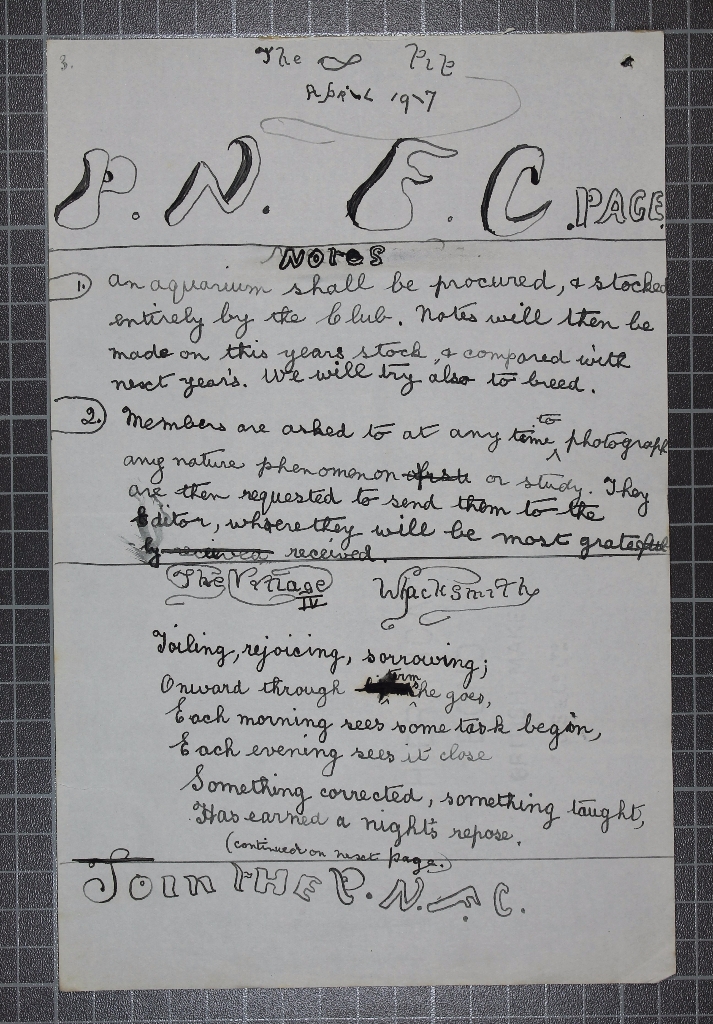 3.
The Pip
April 1917
P. N. F. C. PAGE
NOTES
1. an aquarium shall be procured, & stocked
entirely by the Club. Notes will then be
made on this years stock, & compared with
next year's. We will try also to breed.
2. Members are asked to at any time to photograph
any nature phenomenon or study. They
are then requested to send them to the
Editor, where they will be most grateful
by received received.
The Village Wlacksmith
IV
Toiling, rejoicing, sorrowing;
Onward through term he goes,
Each morning sees some task begin,
Each evening sees it close
Something corrected, something taught,
Has earned a night's repose.
(continued on next page.)
JOIN THE P. N. F. C.